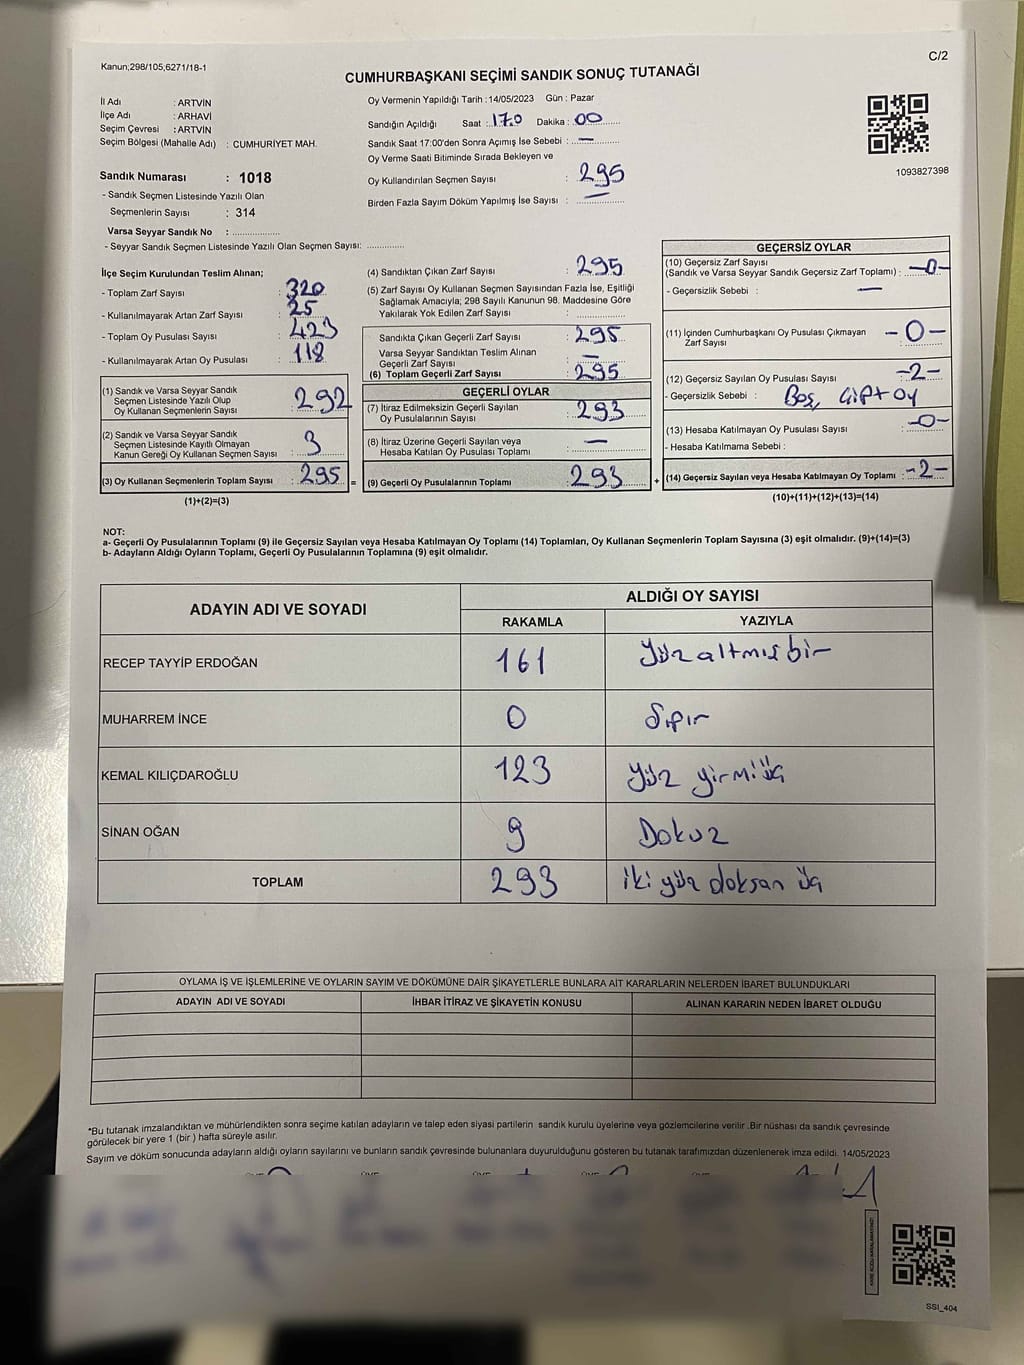 Kanun;298/105,6271/18-1
C/2
CUMHURBAŞKANI SEÇİMİ SANDIK SONUÇ TUTANAĞI
İl Adı : ARTVİN
İlçe Adı : ARHAVİ
Seçim Çevresi : ARTVİN
Seçim Bölgesi (Mahalle Adı) : CUMHURİYET MAH.
Sandık Numarası : 1018
- Sandık Seçmen Listesinde Yazılı Olan
Seçmenlerin Sayısı : 314
Varsa Seyyar Sandık No : ..................
- Seyyar Sandık Seçmen Listesinde Yazılı Olan Seçmen Sayısı: ..............
Oy Vermenin Yapıldığı Tarih :14/05/2023 Gün : Pazar
Sandığın Açıldığı Saat : 17.0 Dakika : 00
Sandık Saat 17:00'den Sonra Açımış İse Sebebi : —
Oy Verme Saati Bitiminde Sırada Bekleyen ve
Oy Kullandırılan Seçmen Sayısı : 295
Birden Fazla Sayım Döküm Yapılmış İse Sayısı : —
1093827398
İlçe Seçim Kurulundan Teslim Alınan;
- Toplam Zarf Sayısı : 320
- Kullanılmayarak Artan Zarf Sayısı : 25
- Toplam Oy Pusulası Sayısı : 423
- Kullanılmayarak Artan Oy Pusulası : 118
(1) Sandık ve Varsa Seyyar Sandık
Seçmen Listesinde Yazılı Olup
Oy Kullanan Seçmenlerin Sayısı : 292
(2) Sandık ve Varsa Seyyar Sandık
Seçmen Listesinde Kayıtlı Olmayan
Kanun Gereği Oy Kullanan Seçmen Sayısı : 3
(3) Oy Kullanan Seçmenlerin Toplam Sayısı : 295 =
(1)+(2)=(3)
(4) Sandıktan Çıkan Zarf Sayısı : 295
(5) Zarf Sayısı Oy Kullanan Seçmen Sayısından Fazla İse, Eşitliği
Sağlamak Amacıyla; 298 Sayılı Kanunun 98. Maddesine Göre
Yakılarak Yok Edilen Zarf Sayısı : ..................
Sandıkta Çıkan Geçerli Zarf Sayısı : 295
Varsa Seyyar Sandıktan Teslim Alınan
Geçerli Zarf Sayısı : —
(6) Toplam Geçerli Zarf Sayısı : 295
GEÇERLİ OYLAR
(7) İtiraz Edilmeksizin Geçerli Sayılan
Oy Pusulalarının Sayısı : 293
(8) İtiraz Üzerine Geçerli Sayılan veya
Hesaba Katılan Oy Pusulası Toplamı : —
(9) Geçerli Oy Pusulalarının Toplamı : 293 +
GEÇERSİZ OYLAR
(10) Geçersiz Zarf Sayısı
(Sandık ve Varsa Seyyar Sandık Geçersiz Zarf Toplamı) : -0-
- Geçersizlik Sebebi : —
(11) İçinden Cumhurbaşkanı Oy Pusulası Çıkmayan
Zarf Sayısı : -0-
(12) Geçersiz Sayılan Oy Pusulası Sayısı : -2-
- Geçersizlik Sebebi : Boş, Çift oy
(13) Hesaba Katılmayan Oy Pusulası Sayısı : -0-
- Hesaba Katılmama Sebebi :
(14) Geçersiz Sayılan veya Hesaba Katılmayan Oy Toplamı : -2-
(10)+(11)+(12)+(13)=(14)
NOT:
a- Geçerli Oy Pusulalarının Toplamı (9) ile Geçersiz Sayılan veya Hesaba Katılmayan Oy Toplamı (14) Toplamları, Oy Kullanan Seçmenlerin Toplam Sayısına (3) eşit olmalıdır. (9)+(14)=(3)
b- Adayların Aldığı Oyların Toplamı, Geçerli Oy Pusulalarının Toplamına (9) eşit olmalıdır.
ADAYIN ADI VE SOYADI ALDIĞI OY SAYISI
RAKAMLA YAZIYLA
RECEP TAYYİP ERDOĞAN 161 Yüz altmış bir
MUHARREM İNCE 0 Sıfır
KEMAL KILIÇDAROĞLU 123 Yüz yirmi üç
SİNAN OĞAN 9 Dokuz
TOPLAM 293 iki yüz doksan üç
OYLAMA İŞ VE İŞLEMLERİNE VE OYLARIN SAYIM VE DÖKÜMÜNE DAİR ŞİKAYETLERLE BUNLARA AİT KARARLARIN NELERDEN İBARET BULUNDUKLARI
ADAYIN ADI VE SOYADI İHBAR İTİRAZ VE ŞİKAYETİN KONUSU ALINAN KARARIN NEDEN İBARET OLDUĞU
*Bu tutanak imzalandıktan ve mühürlendikten sonra seçime katılan adayların ve talep eden siyasi partilerin sandık kurulu üyelerine veya gözlemcilerine verilir .Bir nüshası da sandık çevresinde
görülecek bir yere 1 (bir ) hafta süreyle asılır.
Sayım ve döküm sonucunda adayların aldığı oyların sayılarını ve bunların sandık çevresinde bulunanlara duyurulduğunu gösteren bu tutanak tarafımızdan düzenlenerek imza edildi. 14/05/2023
KARE KODU KARALAMAYINIZ!
SSI_404